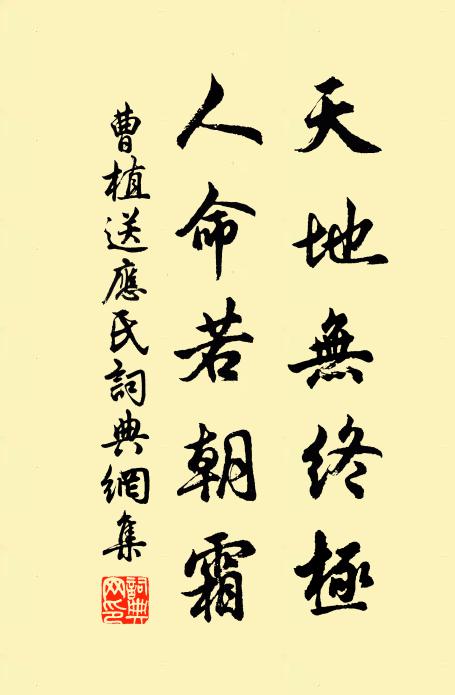 天地無終極
人命若朝霜
曹植送應氏詞典網集
詞典网印